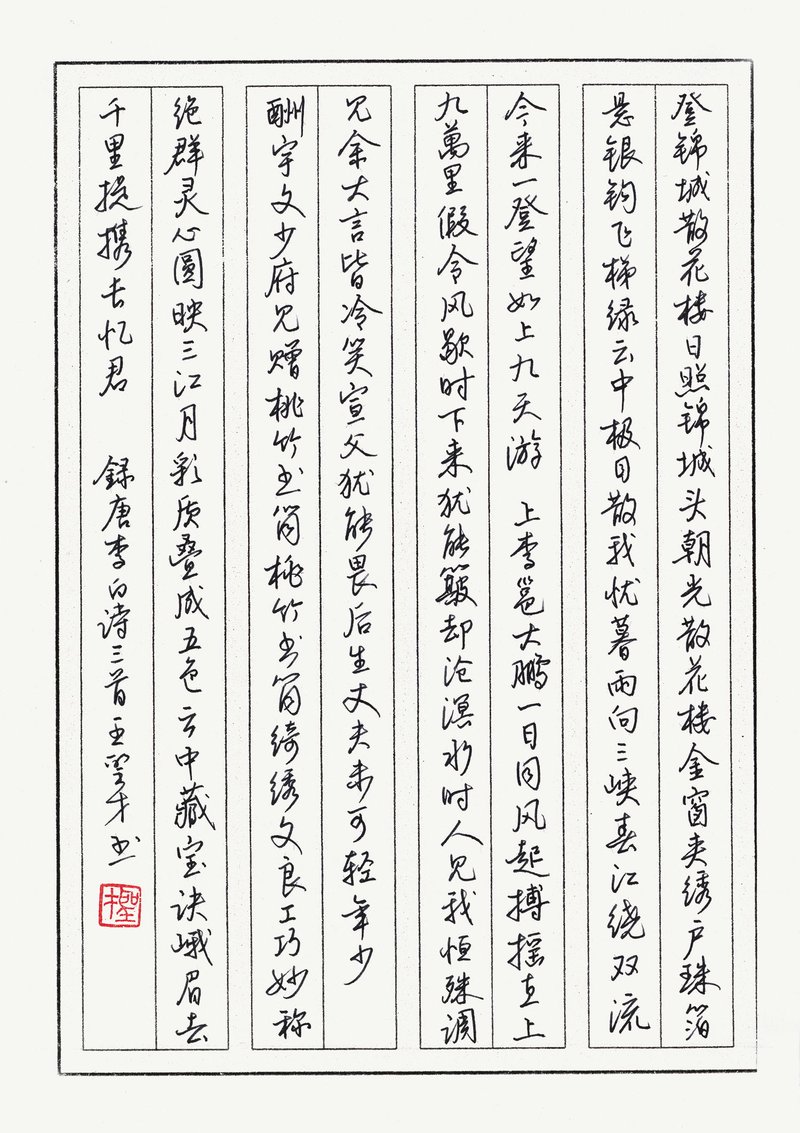 登锦城散花楼日照锦城头朝光散花楼金窗夹绣户珠箔
悬银钩飞梯绿云中极目散我忧暮雨向三峡春江绕双流
今来一登望如上九天游 上李邕大鹏一日同风起搏摇直上
九萬里假令风歇时下来犹能簸却沧溟水时人见我恒殊调
见余大言皆冷笑宣父犹能畏后生丈夫未可轻年少
酬宇文少府见赠桃竹书筒桃竹书筒绮绣文良工巧妙称
绝群灵心圓映三江月彩质叠成五色云中藏宝诀峨眉去
千里提携长忆君 録唐李白诗三首王才书